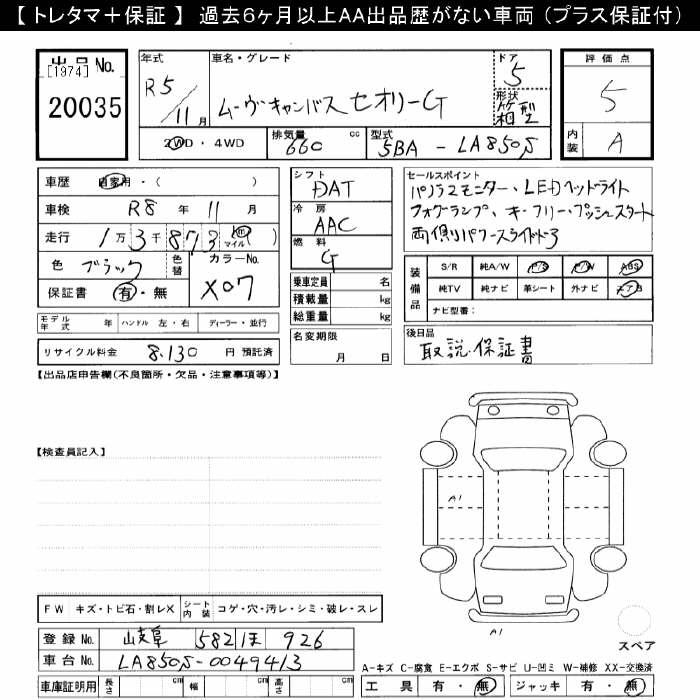 【 トレタマ＋保証 】 過去6ヶ月以上AA出品歴がない車両 (プラス保証付)
出品 No.
[1974]
20035
年式
R5
11 月
車名・グレード
ムーヴキャンバス セオリーG
ドア
5
形状
箱型
評価点
5
内装
A
2WD・4WD
排気量
660 cc
型式
5BA - LA850S
車歴 自家用・( )
車検 R8 年 11 月
走行 1 万 3 千 8 7 3 km マイル
色 ブラック
色替
カラーNo.
X07
保証書 有・無
シフト
DAT
冷房
AAC
燃料
G
乗車定員 名
積載量 kg
総重量 kg
セールスポイント
パノラマモニター、LEDヘッドライト
フォグランプ、キーフリー、プッシュスタート
両側パワースライドドア
装備品
S/R 純A/W P/S P/W ABS
純TV 純ナビ 革シート 外ナビ エアB
ナビ型番：
モデル年式 年 ハンドル 左・右 ディーラー・並行
名変期限
月 日
後日品
取説・保証書
リサイクル料金 8,130 円 預託済
【出品店申告欄(不良箇所・欠品・注意事項等)】
【検査員記入】
A1
A1
FW キズ・トビ石・割レX シート内装 コゲ・穴・汚レ・シミ・破レ・スレ
登録 No. 岐阜 582 ほ 926
車台 No. LA850S-0049413
スペア
A-キズ C-腐食 E-エクボ S-サビ U-凹ミ W-補修 XX-交換済
車庫証明用 長さ cm 幅 cm 高さ cm
工具 有・無 ジャッキ 有・無